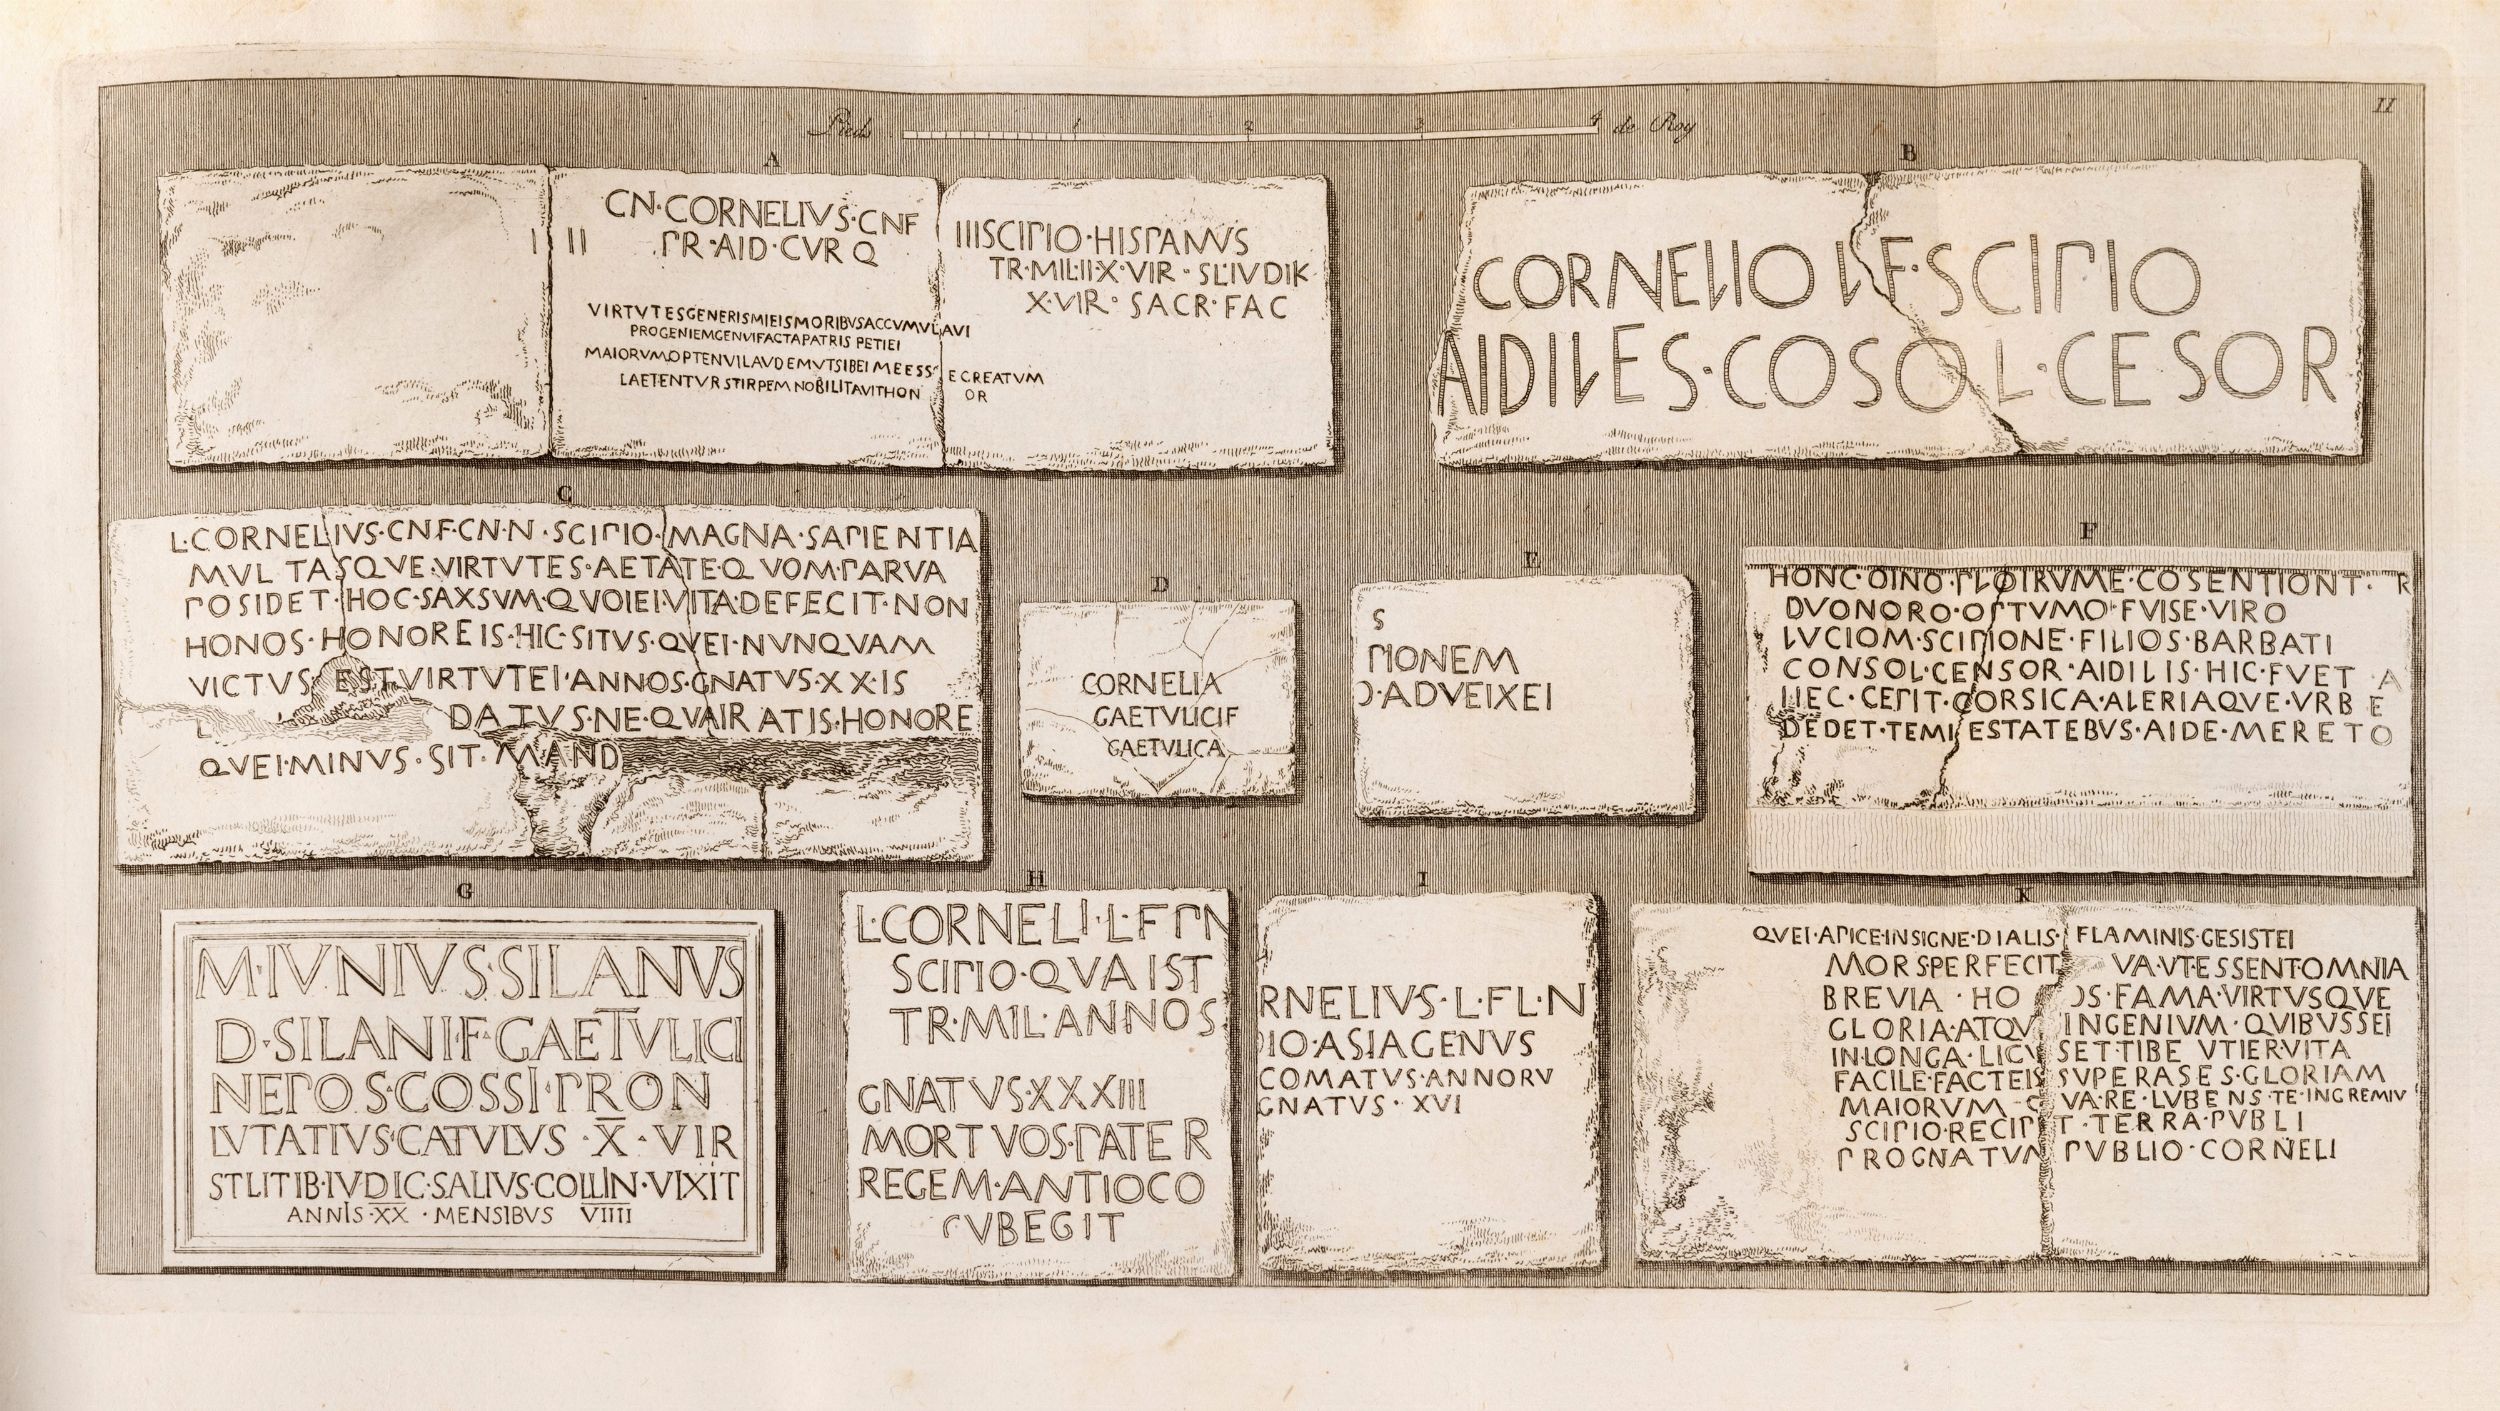 II
Pieds 1 2 3 4 de Roy
A
I II CN·CORNELIVS·CNF IIISCIPIO·HISPANVS
PR·AID·CVR Q TR·MIL·II·X·VIR·SL·IVDIK
X·VIR· SACR·FAC
VIRTVTESGENERISMIEISMORIBVSACCVMVLAVI
PROGENIEMGENVIFACTAPATRIS PETIEI
MAIORVMOPTENVILAVDEMVTSIBEI MEESSECREATVM
LAETENTVR STIRPEM NOBILITAVITHONOR
B
CORNELIO L·F·SCIPIO
AIDILES·COSOL·CESOR
C
L·CORNELIVS·CNF·CN·N·SCIPIO·MAGNA·SAPIENTIA
MVLTASQVE·VIRTVTES·AETATE·QVOM·PARVA
POSIDET·HOC·SAXSVM·QVOIEI·VITA·DEFECIT·NON
HONOS·HONORE IS·HIC·SITVS·QVEI·NVNQVAM
VICTVS EST·VIRTVTEI·ANNOS·GNATVS·XX·IS
L DATVS·NE·QVAIRATIS·HONORE
QVEI·MINVS·SIT·MAND
D
CORNELIA
GAETVLICIF
GAETVLICA
E
S
PIONEM
O·ADVEIXEI
F
HONC·OINO·PLOIRVME·COSENTIONT·R
DVONORO·OPTVMO·FVISE·VIRO
LVCIOM·SCIPIONE·FILIOS·BARBATI
CONSOL·CENSOR·AIDILIS·HIC·FVET A
HEC·CEPIT·CORSICA·ALERIAQVE·VRBE
DEDET·TEMPESTATEBVS·AIDE·MERETO
G
M·IVNIVS·SILANVS
D·SILANI·F·GAETVLICI
NEPOS·COSSI·PRON
LVTATIVS·CATVLVS·X·VIR
STLITIB·IVDIC·SALIVS·COLLIN·VIXIT
ANNIS·XX·MENSIBVS VIIII
H
L·CORNELI·L·F PN
SCIPIO·QVAIST
TR·MIL·ANNOS
GNATVS·XXXIII
MORTVOS·PATER
REGEM·ANTIOCO
SVBEGIT
I
RNELIVS·L·F L·N
PIO·ASIAGENVS
COMATVS·ANNORV
GNATVS·XVI
K
QVEI·APICE·INSIGNE·DIALIS·FLAMINIS·GESISTEI
MORSPERFECIT VA·VT·ESSENT·OMNIA
BREVIA·HO OS·FAMA·VIRTVSQVE
GLORIA·ATQV INGENIVM·QVIBVSSEI
IN·LONGA·LICV SET·TIBE VTIER·VITA
FACILE·FACTEIS SVPERASES·GLORIAM
MAIORVM·Q VA·RE·LVBENS·TE·INGREMIV
SCIPIO·RECIPIT·TERRA·PVBLI
PROGNATVM PVBLIO·CORNELI